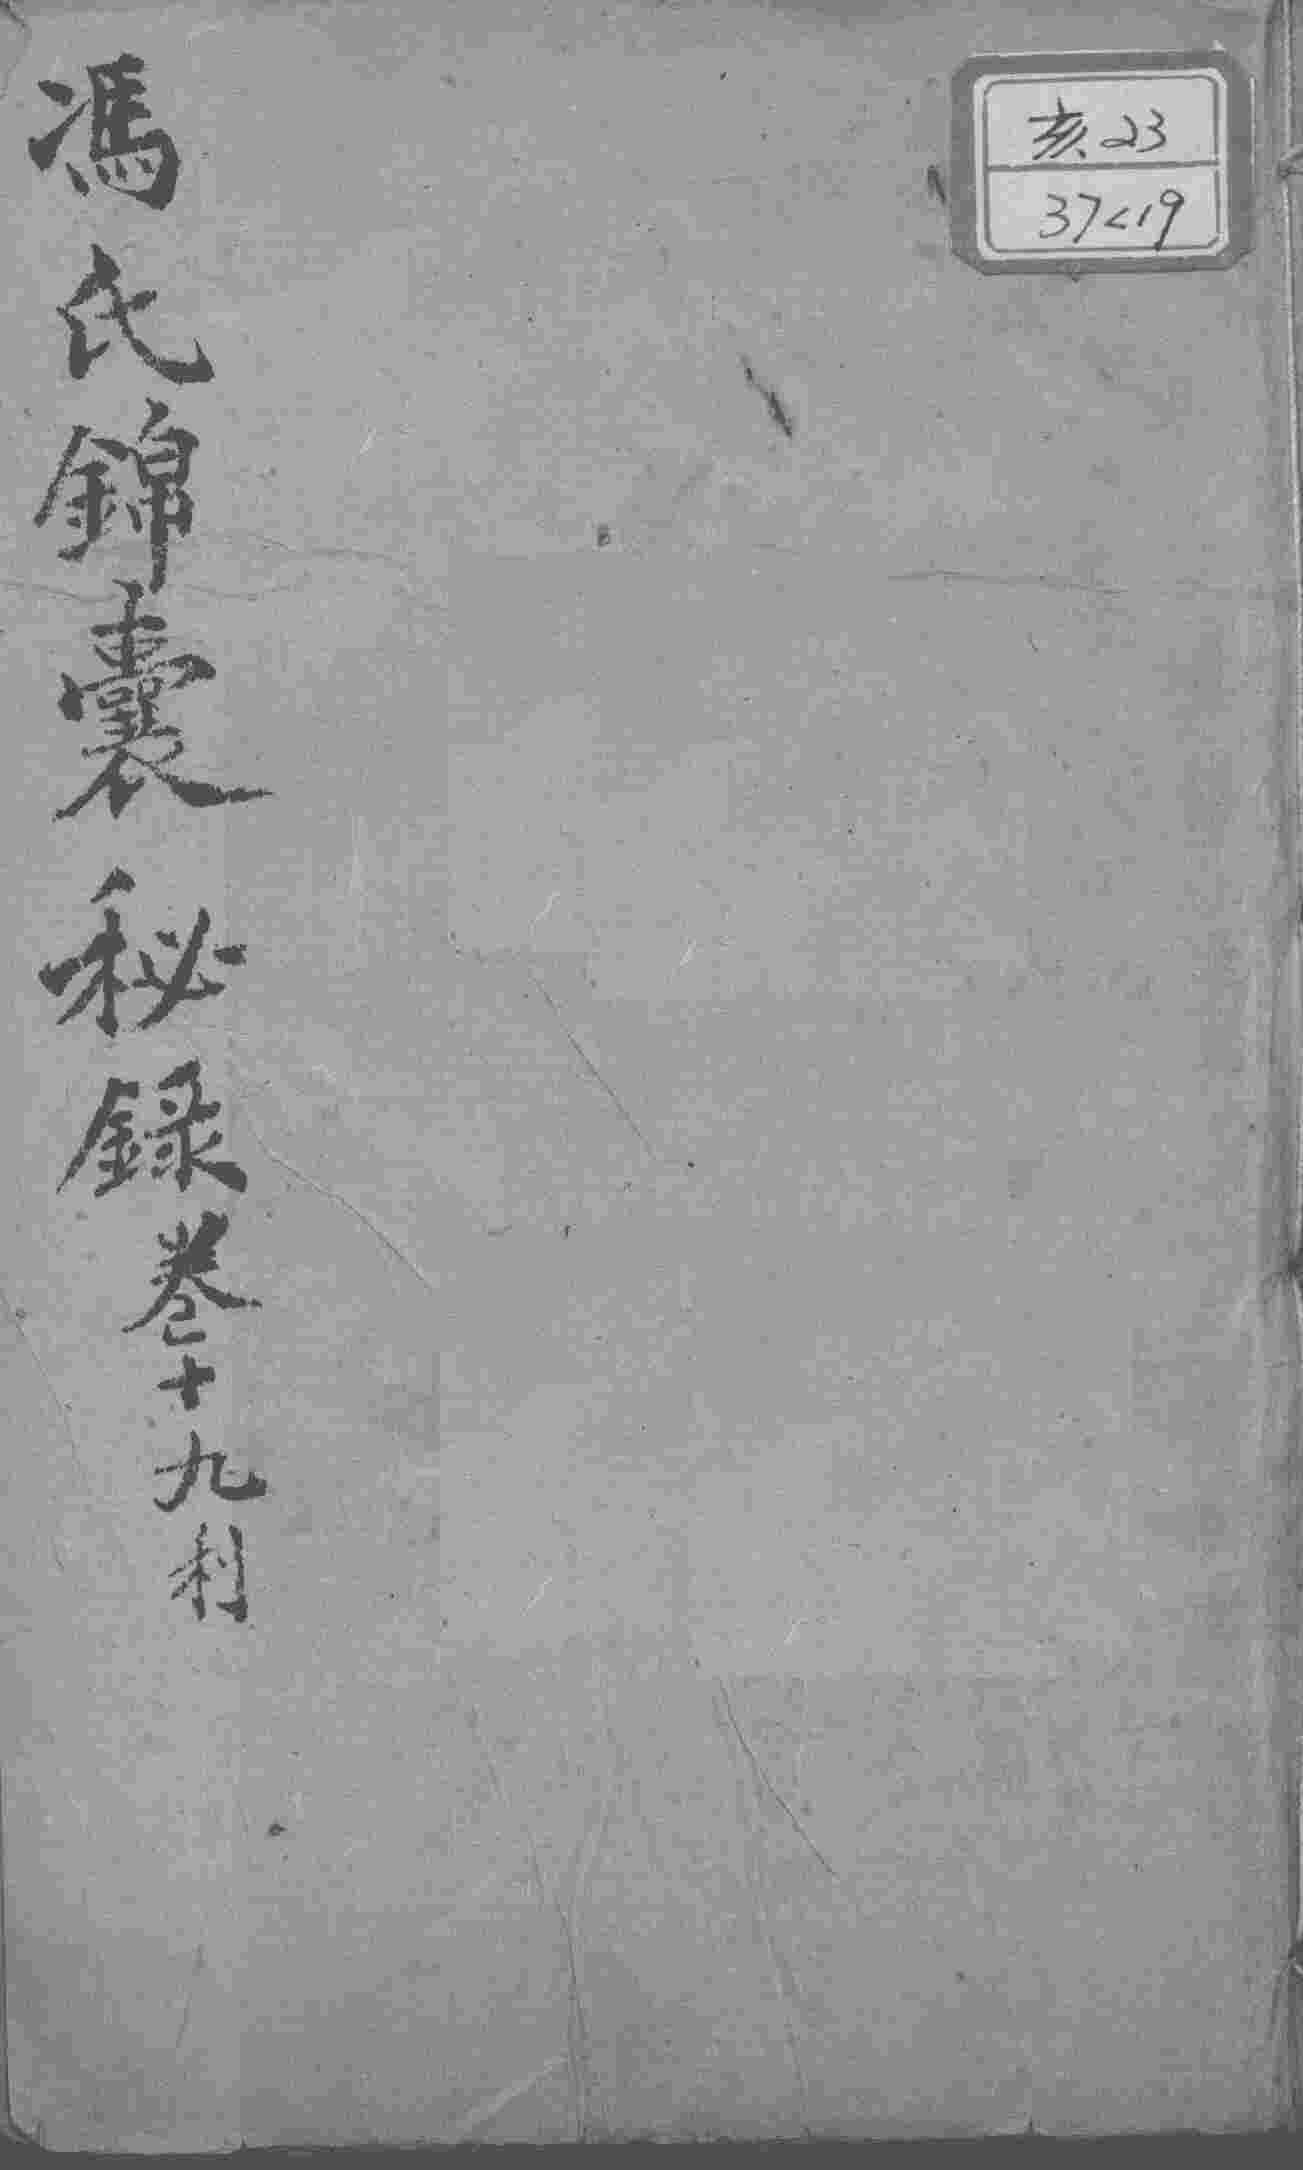 亥23
37<19
馮氏錦囊秘録卷十九利